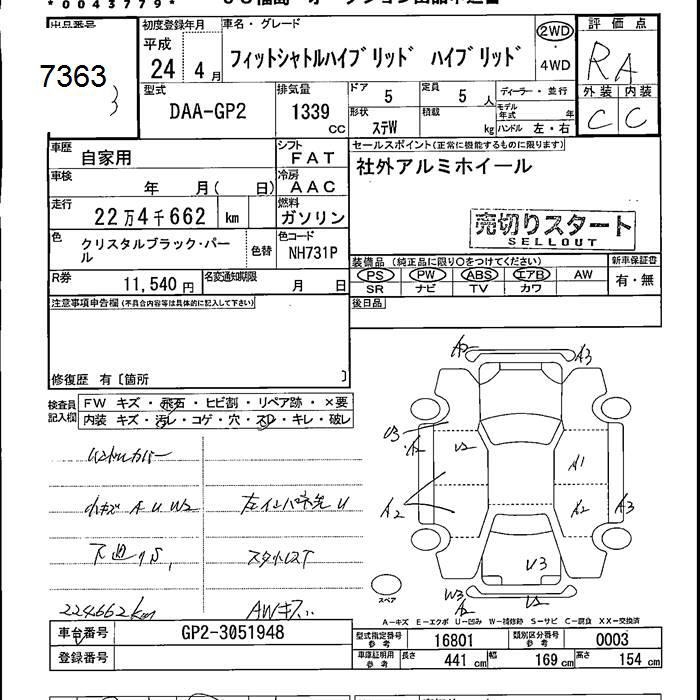 *0043779*
7363
初度登録年月
平成
24 年 4 月
車名・グレード
フィットシャトルハイブリッド ハイブリッド
2WD
・
4WD
評 価 点
RA
外装 内装
C C
型式
DAA-GP2
排気量
1339
CC
ドア
5
定員
5 人
ディーラー・並行
形状
ステW
積載
kg
モデル年式 年
ハンドル 左・右
車歴
自家用
シフト
FAT
車検
年 月( 日)
冷房
AAC
走行
22万4千662 km
燃料
ガソリン
色
クリスタルブラック・パール
色替
色コード
NH731P
R券
11,540 円
名変通知期限
月 日
セールスポイント(正常に機能するものに限ります)
社外アルミホイール
売切りスタート
SELLOUT
装備品 (純正品に限り○をつけてください)
PS PW ABS エアB AW
SR ナビ TV カワ
新車保証書
有・無
後日品
注意事項申告欄(不具合内容等は具体的に記入して下さい)
修復歴 有〔箇所 〕
検査員記入欄
FW キズ・飛石・ヒビ割・リペア跡・×要
内装 キズ・汚レ・コゲ・穴・スレ・キレ・破レ
小キズ A U W2
下廻りS,
スタッドレスT
224,662km
AWキズ
A2
A3
U3
A2
U2
A1
A2
A2
A3
U3
W3
A2
U2
スペア
A-キズ E-エクボ U-凹み W-補修跡 S-サビ C-腐食 XX-交換済
車台番号
GP2-3051948
登録番号
型式指定番号
参考
16801
類別区分番号
参考
0003
車庫証明用
参考
長さ
441 cm
幅
169 cm
高さ
154 cm